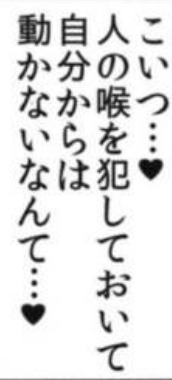 こいつ…♥
人の喉を犯しておいて
自分からは
動かないなんて…♥